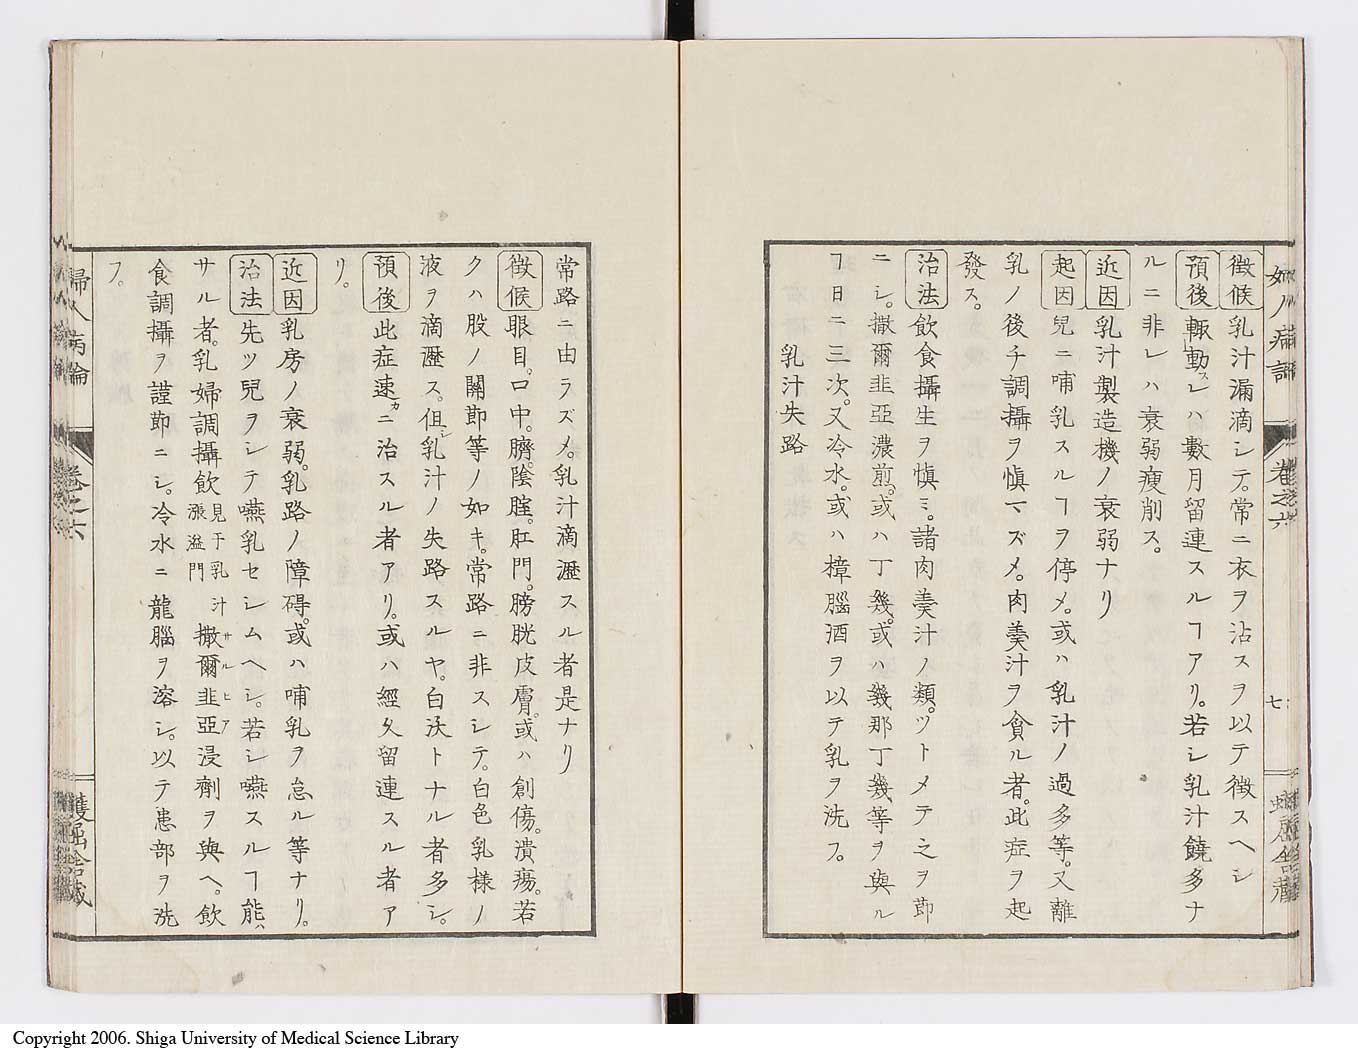 徴候 乳汁漏滴シテ。常ニ衣ヲ沾スヲ以テ徴スヘシ
預後 輙動スレハ數月留連スルヿアリ。若シ乳汁饒多ナ
ルニ非レハ衰弱瘦削ス。
近因 乳汁製造機ノ衰弱ナリ
起因 兒ニ哺乳スルヿヲ停メ。或ハ乳汁ノ過多等。又離
乳ノ後チ調攝ヲ愼マズメ。肉羹汁ヲ貪ル者。此症ヲ起
發ス。
治法 飲食攝生ヲ愼ミ。諸肉羹汁ノ類。ツトメテ之ヲ節
ニシ。撒爾韭亞濃煎。或ハ丁幾。或ハ幾那丁幾等ヲ與ル
ヿ日ニ三次。又冷水。或ハ樟腦酒ヲ以テ乳ヲ洗フ。
乳汁失路
常路ニ由ラズメ。乳汁滴瀝スル者是ナリ
徴候 眼目。口中。臍。陰腟。肛門。膀胱皮膚。或ハ創傷。潰瘍。若
クハ股ノ關節等ノ如キ。常路ニ非スシテ。白色乳樣ノ
液ヲ滴瀝ス。但シ乳汁ノ失路スルヤ。白沃トナル者多シ。
預後 此症速カニ治スル者アリ。或ハ經久留連スル者ア
リ。
近因 乳房ノ衰弱。乳路ノ障碍。或ハ哺乳ヲ怠ル等ナリ。
治法 先ツ兒ヲシテ嚥乳セシムヘシ。若シ嚥スルヿ能ハ
サル者。乳婦調攝飲 見于乳汁漲溢門 撒爾韭亞サルヒア浸劑ヲ與ヘ。飲
食調攝ヲ謹節ニシ。冷水ニ龍腦ヲ溶シ。以テ患部ヲ洗
フ。
婦人病論 卷之六